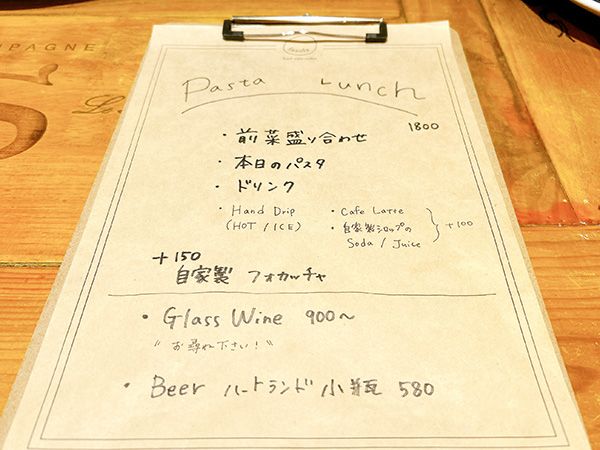 MPAGNE
Pasta Lunch
1800
・前菜盛り合わせ
・本日のパスタ
・ドリンク
・Hand Drip
(HOT / ICE)
・Cafe Latte
・自家製シロップの
Soda / Juice
+100
+150
自家製 フォカッチャ
・Glass Wine 900〜
"お尋ね下さい!"
・Beer ハートランド小瓶 580